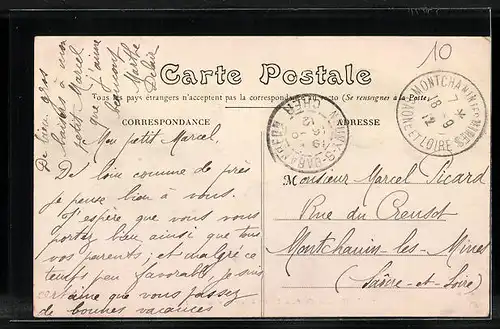 10
De bien gros
baisers à mon
petit Marcel
que j'aime
beaucoup
Marthe
Carte Postale
Tous les pays étrangers n'acceptent pas la correspondance au recto (Se renseigner à la Poste)
CORRESPONDANCE
ADRESSE
MONTCHANIN-LES-MINES
SAONE ET LOIRE
CHER
Mon petit Marcel,
De loin comme de près
je pense bien à vous.
J'espère que vous vous
portez bien ainsi que tous
vos parents; et malgré ce
temps peu favorable, je suis
certaine que vous passez
de bonnes vacances
Monsieur Marcel Picard
Rue du Creusot
Montchanin-les-Mines
(Saône-et-Loire)